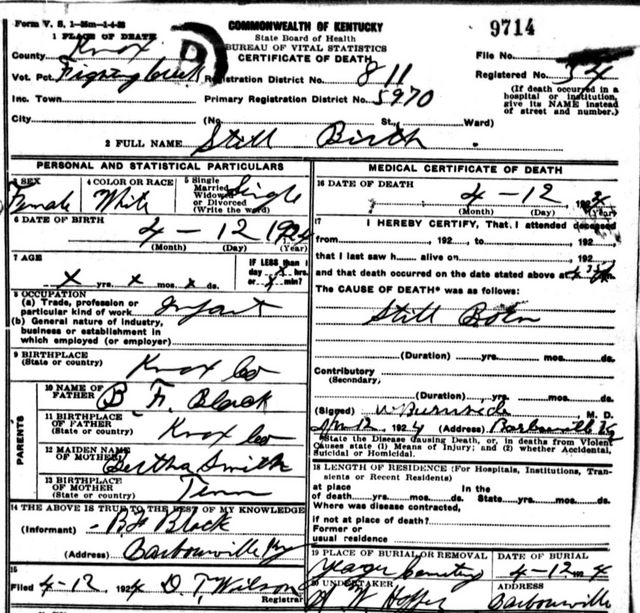 Form V. S. 1-25m-1-4-23
COMMONWEALTH OF KENTUCKY
State Board of Health
BUREAU OF VITAL STATISTICS
CERTIFICATE OF DEATH
9714
1 PLACE OF DEATH
County Knox
D
File No.
Vot. Pct. Registration District No. 811 Registered No. 34
Inc. Town Primary Registration District No. 5970
(If death occurred in a hospital or institution, give its NAME instead of street and number.)
City (No. St., Ward)
2 FULL NAME Still Birth
PERSONAL AND STATISTICAL PARTICULARS
3 SEX Female
4 COLOR OR RACE White
5 Single Married Widowed or Divorced (Write the word) Single
6 DATE OF BIRTH 4-12 1924
(Month) (Day) (Year)
7 AGE x yrs. x mos. x ds.
IF LESS than 1 day x hrs. or x min?
8 OCCUPATION
(a) Trade, profession or particular kind of work Infant
(b) General nature of industry, business or establishment in which employed (or employer)
9 BIRTHPLACE (State or country) Knox Co
PARENTS
10 NAME OF FATHER B F. Black
11 BIRTHPLACE OF FATHER (State or country) Knox Co
12 MAIDEN NAME OF MOTHER Bertha Smith
13 BIRTHPLACE OF MOTHER (State or country) Tenn
14 THE ABOVE IS TRUE TO THE BEST OF MY KNOWLEDGE
(Informant) B F Black
(Address) Barbourville Ky
15
Filed 4-12 1924 D T Wilson
Registrar
MEDICAL CERTIFICATE OF DEATH
16 DATE OF DEATH 4-12 1924
(Month) (Day) (Year)
17 I HEREBY CERTIFY, That I attended deceased
from , 192 , to , 192
that I last saw h alive on , 192
and that death occurred on the date stated above at
The CAUSE OF DEATH* was as follows:
Still Born
(Duration) yrs. mos. ds.
Contributory
(Secondary)
(Duration) yrs. mos. ds.
(Signed) , M. D.
1924 (Address) Barbourville Ky
*State the Disease Causing Death, or, in deaths from Violent
Causes state (1) Means of Injury; and (2) whether Accidental,
Suicidal or Homicidal.
18 LENGTH OF RESIDENCE (For Hospitals, Institutions, Transients or Recent Residents)
at place of death yrs. mos. ds. In the State yrs. mos. ds.
Where was disease contracted,
if not at place of death?
Former or usual residence
19 PLACE OF BURIAL OR REMOVAL Cemetery
DATE OF BURIAL 4-12 1924
20 UNDERTAKER
ADDRESS Barbourville